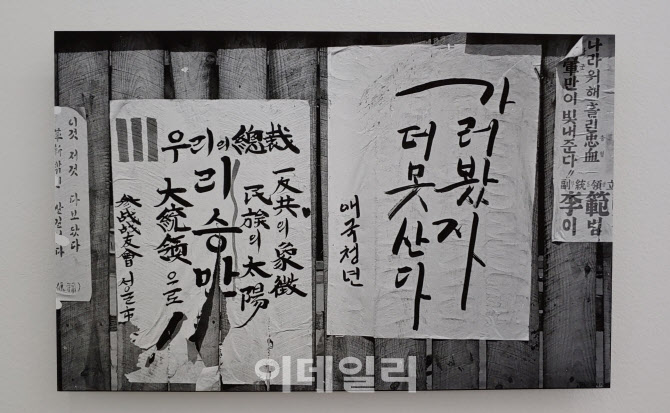 나라위해 흘린忠血
軍만이 빛내준다!!
副統領立
李範
이범
가러봤자
더못산다
애국청년
우리의 總裁
一反共의 象徵
民族의 太陽
리승만
大統領으로
战友會 서울市
이것 저것 다보았다
이데일리